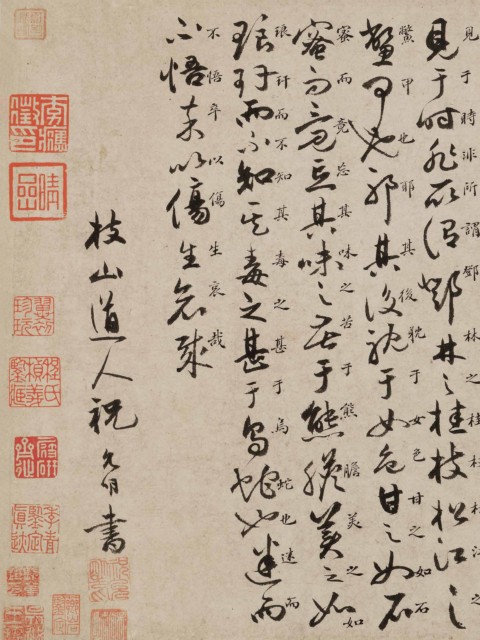 見于時非所謂鄧林之桂枝松江之
見于時非所謂鄧林之桂枝松江之
鱉甲也耶其後耽于女色甘之如石
鱉甲也耶其後耽于女色甘之如石
蜜而竟忘其味之苦于熊膽美之如
蜜而竟忘其味之苦于熊膽美之如
琅玕而不知其毒之甚于烏蛇也迷而
琅玕而不知其毒之甚于烏蛇也迷而
不悟卒以傷生哀哉
不悟卒以傷生哀哉
枝山道人祝允明書